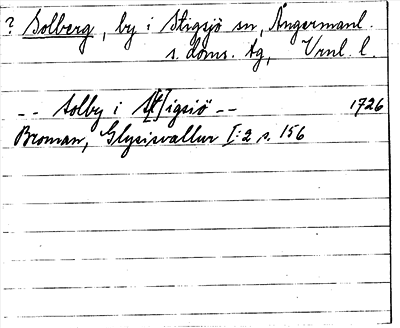 ? Solberg, by i Stigsjö sn, Ångermanl.
s. doms. tg, Vrnl. l.
-- Solby i S[t]igsiö -- 1726
Broman, Glysisvallur I:2 s. 156